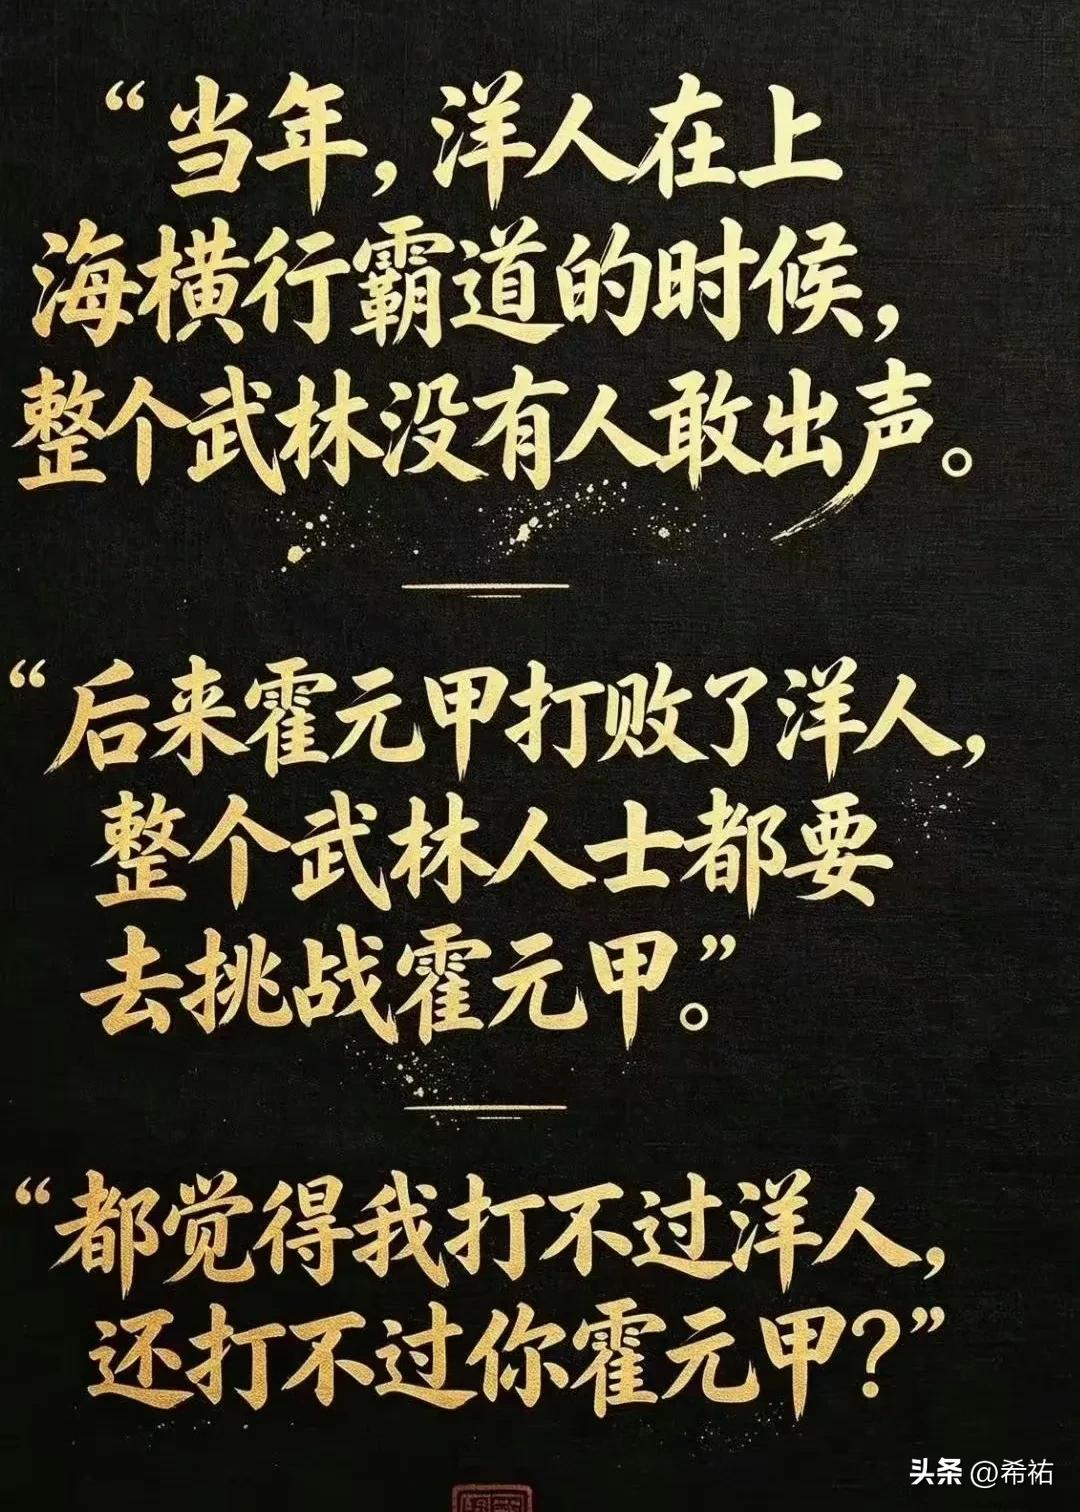 “当年，洋人在上
海横行霸道的时候，
整个武林没有人敢出声。
“后来霍元甲打败了洋人，
整个武林人士都要
去挑战霍元甲。”
“都觉得我打不过洋人，
还打不过你霍元甲？”
头条 @希祐